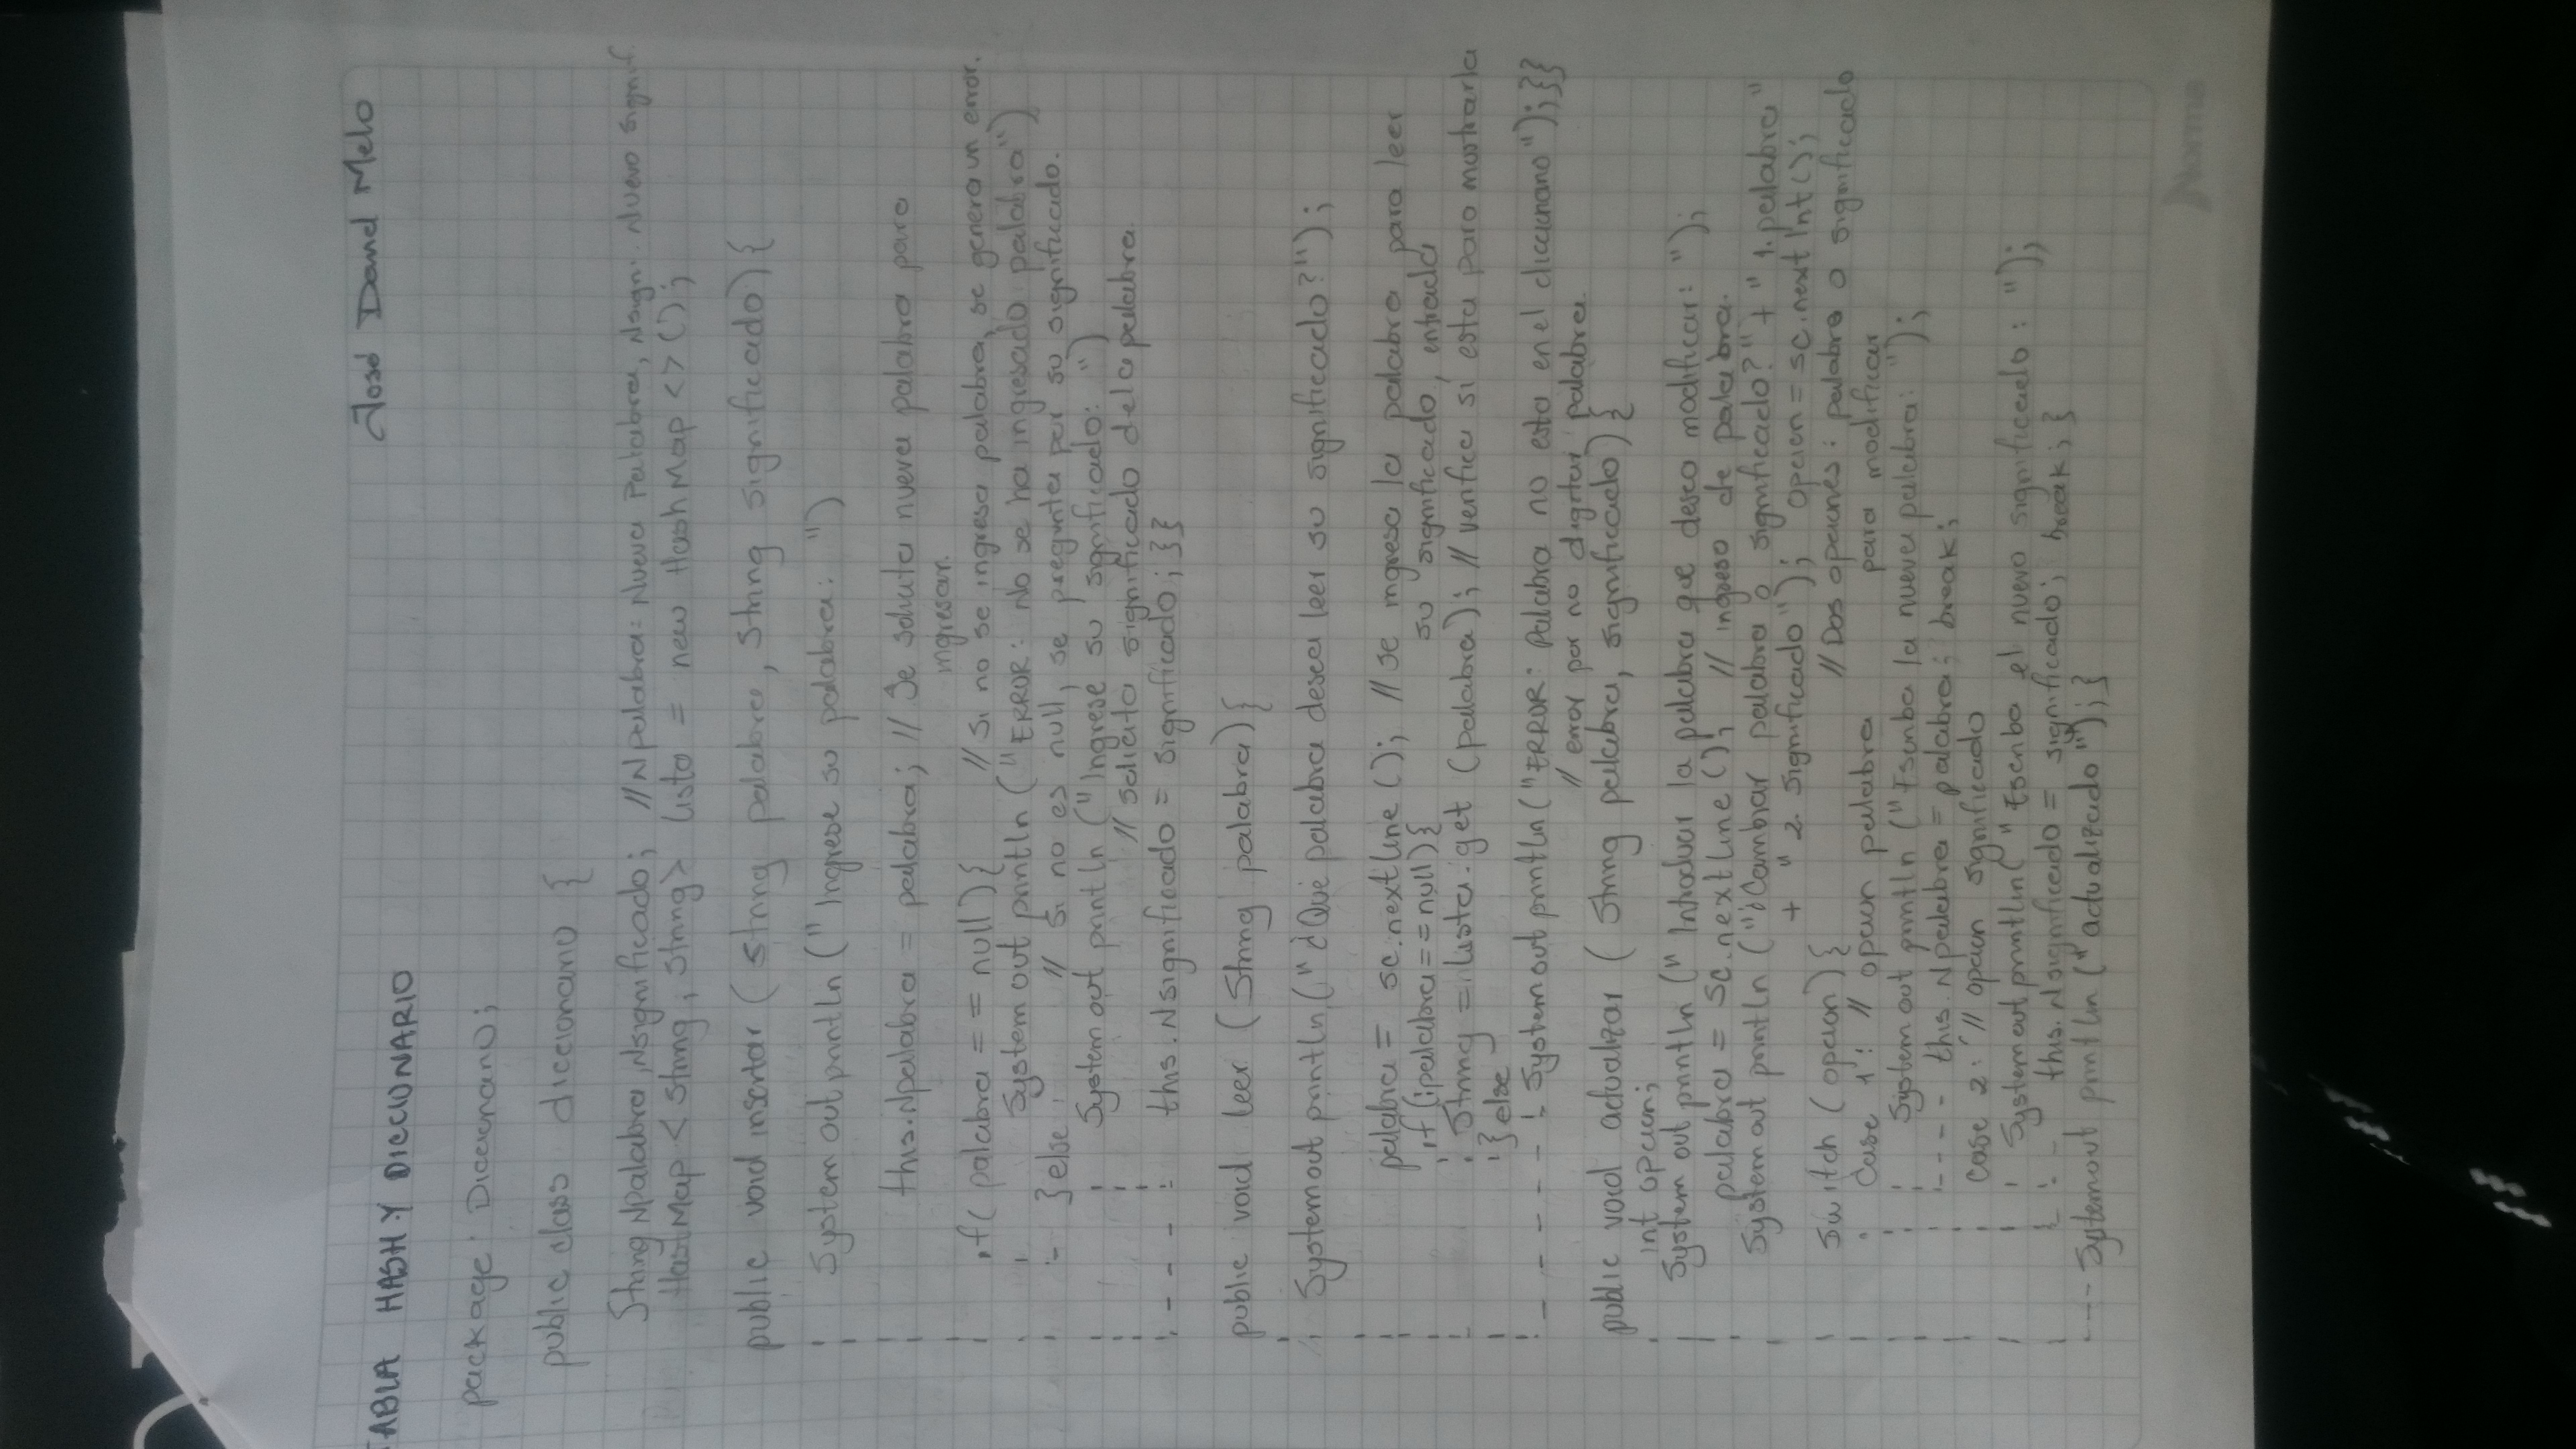 TABLA HASH Y DICCIONARIO
José Daniel Melo
package Diccionario;
public class diccionario {
String Npalabra, Nsignificado; // Npalabra: Nueva Palabra, Nsign: Nuevo signif.
HashMap < String, String> lista = new HashMap <> ();
public void insertar ( string palabra, String significado){
System out println (" Ingrese su palabra: ")
this.Npalabra = palabra; // Se solicita nueva palabra para
ingresar.
if( palabra == null){ // Si no se ingresa palabra, se genera un error.
System out println ("ERROR: No se ha ingresado palabra")
}else // Si no es null, se pregunta por su significado.
System out println ("Ingrese su significado: ")
// solicita significado de la palabra.
this.Nsignificado = significado; }}
public void leer (String palabra){
System out println (" ¿Qué palabra desea leer su significado?");
palabra = sc.nextline (); // se ingresa la palabra para leer
if (!palabra==null){ su significado, entrada
String = lista.get (palabra); // verifica si esta para mostrarla
}else
System out println ("ERROR: Palabra no esta en el diccionario"); }}
// error por no digitar palabra.
public void actualizar ( String palabra, significado) {
int opcion;
System out println (" Introducir la palabra que desea modificar: ");
palabra = sc.nextline (); // ingreso de palabra.
System out println ("¿Cambiar palabra o significado?" + " 1. palabra"
+ " 2. significado "); opcion = sc.next Int();
switch (opcion) { // Dos opciones: palabra o significado
Case 1: // opcion palabra para modificar
System out println ("Escriba la nueva palabra: ");
this.Npalabra = palabra; break;
case 2: // opcion significado
System out println( " Escriba el nuevo significado : ");
this.Nsignificado = significado; break; }
System out println (" actualizado "); }
Norma